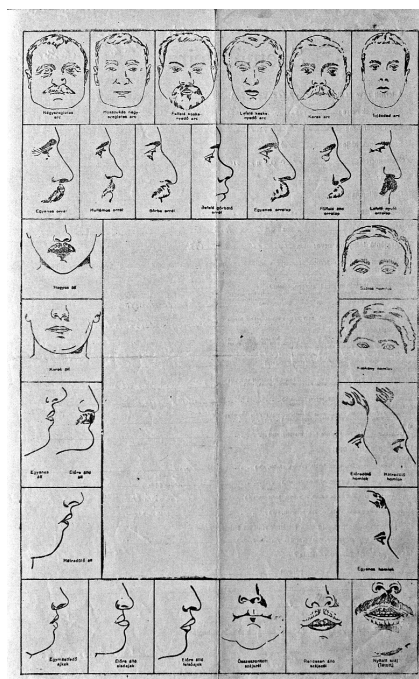 Négyszögletes
arc
Hosszúkás négy-
szögletes arc
Felfelé keske-
nyedő arc
Lefelé keske-
nyedő arc
Kerek arc
Tojásdad arc
Egyenes orrél
Hullámos orrél
Görbe orrél
Befelé görbülő
orrél
Egyenes orralap
orralap
Lefelé nyúló
orralap
Hegyes áll
Kerek áll
Egyenes
áll
Előre álló
áll
Hátradűlő áll
Széles homlok
homlok
Előredűlő
homlok
Hátradűlő
homlok
Egyenes homlok
ajkak
Előre álló
alsóajak
Előre álló
felsőajak
Összeszorított
szájszél
álló
szájszél
Nyitott száj